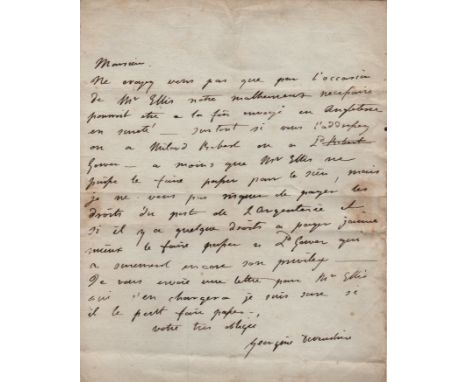 Monsieur.
Ne croyez vous pas que par l'occasion
de Mr Ellis notre malheureux necessaire
pourrit etre a la fin envoyé en Angleterre
en sureté — surtout si vous l'addressey
on a Milord Robert ou a Ld Robert
Gower — a moins que Mr Ellis ne
puisse le faire passer pour le sien, mais
je ne vous pas risquer de payer les
droits du port de L'argenterie et
si il y a quelque droits a payer j'aime
mieux le faire passer a Ld Gower qui
a surement encore son privilege
Je vous envoie une lettre pour Mr Ellis
qui s'en chargera je suis sure si
il le peut faire passer.,
votre tres obligée
Georgine Devonshire